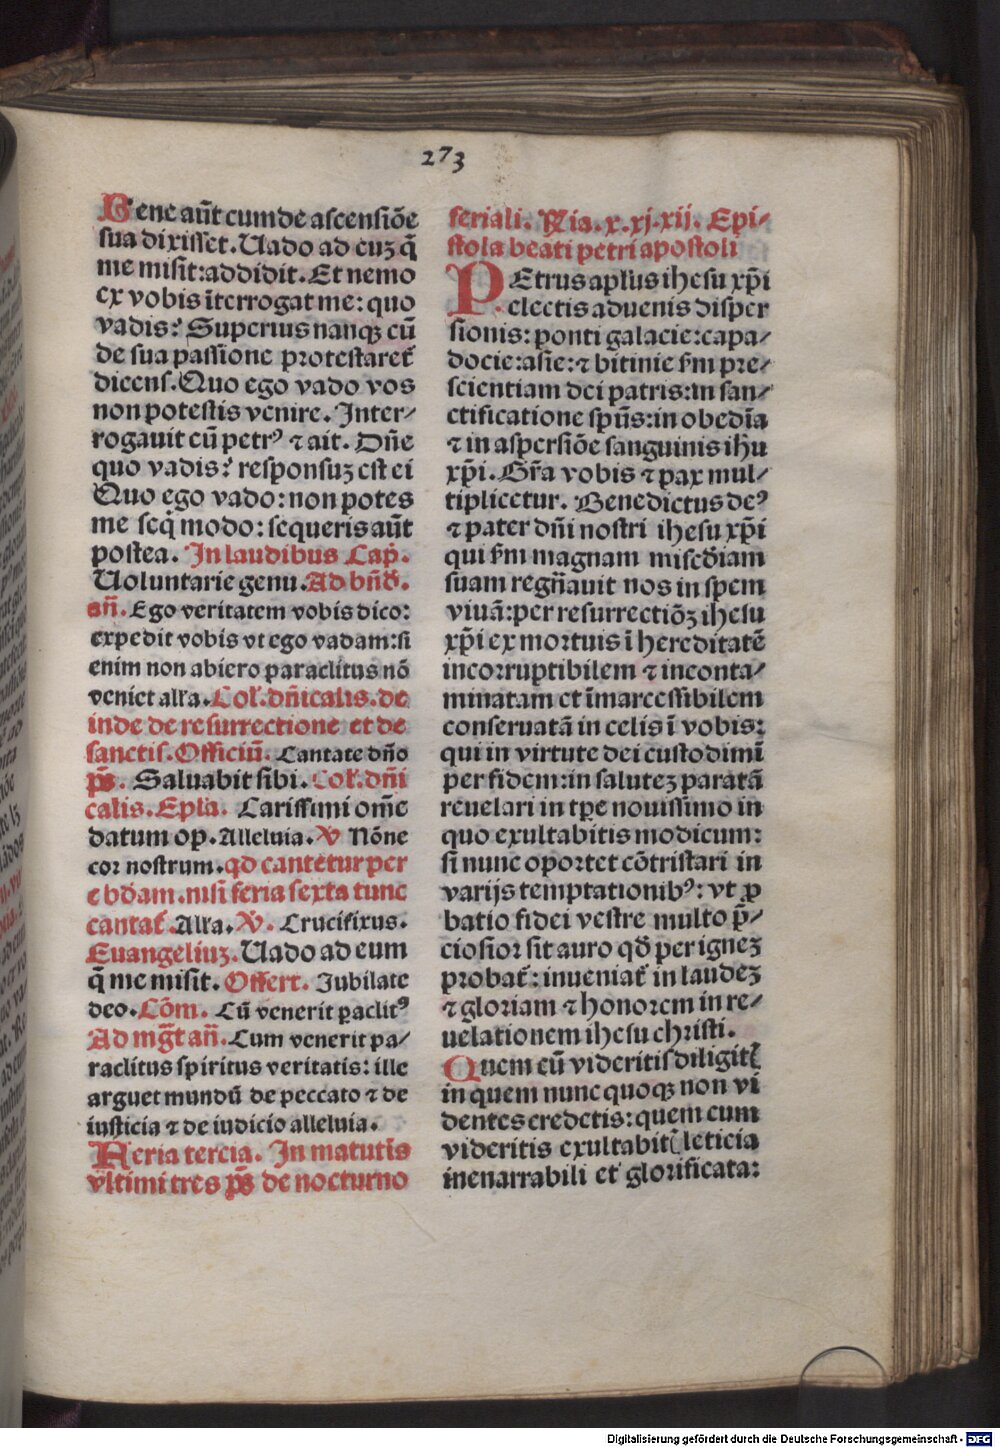 273
Bene aūt cum de ascensiōe
sua dixisset. Uado ad euꝫ q̄
me misit: addidit. Et nemo
ex vobis īterrogat me: quo
vadis? Superius nanqꝫ cū
de sua passione protestaret᷑
dicens. Quo ego vado vos
non potestis venire. Inter⸗
rogauit eū petrꝰ ⁊ ait. Dn̄e
quo vadis? responsuꝫ est ei
Quo ego vado: non potes
me seq̇ modo: sequeris aūt
postea. In laudibus Cap̄.
Uoluntarie genu. Ad bn̄d̄.
an̄. Ego veritatem vobis dico:
expedit vobis vt ego vadam: si
enim non abiero paraclitus nō
veniet all'a. Col'. dn̄icalis. de
inde de resurrectione et de
sanctis. Officiū. Cantate dn̄o
p̄s. Saluabit sibi. Col'. dn̄i
calis. Ep̄la. Carissimi om̄e
datum op̄. Alleluia. ℣ Nōne
cor nostrum. qd cantetur per
ebdam. nisi feria sexta tunc
cantat᷑. All'a. ℣. Crucifixus.
Euangeliuꝫ. Uado ad eum
q̄ me misit. Offert. Jubilate
deo. Cōm. Cū venerit ꝑaclitꝰ
Ad mg̅t an̄. Cum venerit pa⸗
raclitus spiritus veritatis: ille
arguet mundū de peccato ⁊ de
iusticia ⁊ de iudicio alleluia.
Feria tercia. In matutīs
vltimi tres p̄s de nocturno
feriali. R̄ia. x. xj. xij. Epi⸗
stola beati petri apostoli
PEtrus apl'us ihesu xp̄i
electis aduenis disper
sionis: ponti galacie: capa⸗
docie: asie: ⁊ bitinie s̄m pre⸗
scientiam dei patris: in san⸗
ctificatione sp̄us: in obedīa
⁊ in aspersiōe sanguinis ih̄u
xp̄i. Gr̄a vobis ⁊ pax mul⸗
tiplicetur. Benedictus deꝰ
⁊ pater dn̄i nostri ihesu xp̄i
qui s̄m magnam misc̄diam
suam regn̄auit nos in spem
viuā: per resurrectiōꝫ ihesu
xp̄i ex mortuis ī hereditatē
incorruptibilem ⁊ inconta⸗
minatam et īmarcessibilem
conseruatā in celis ī vobis:
qui in virtute dei custodimī
per fidem: in saluteꝫ paratā
reuelari in tp̄e nouissimo in
quo exultabitis modicum:
si nunc oportet cōtristari in
varijs temptationibꝰ: vt ꝓ
batio fidei vestre multo p̄⸗
ciosior sit auro qd̄ per igneꝫ
probat᷑: inueniat᷑ in laudeꝫ
⁊ gloriam ⁊ honorem in re⸗
uelationem ihesu christi.
Quem cū videritis diligitꝭ
in quem nunc quoqꝫ non vi
dentes credetis: quem cum
videritis exultabitꝭ leticia
inenarrabili et glorificata:
Digitalisierung gefördert durch die Deutsche Forschungsgemeinschaft - DFG